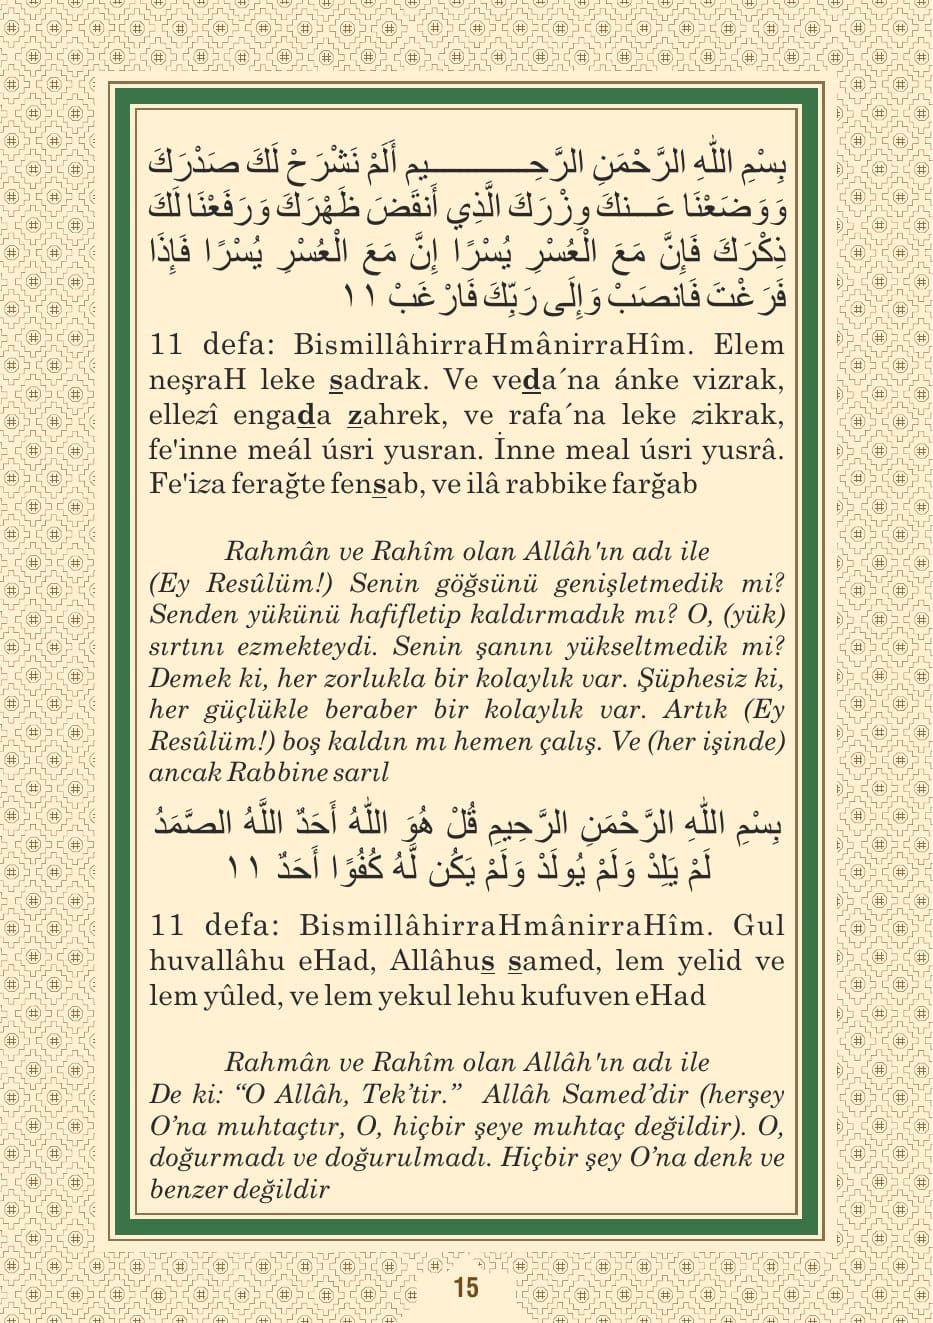 بِسْمِ اللّٰهِ الرَّحْمَنِ الرَّحِـــــــــــيمِ أَلَمْ نَشْرَحْ لَكَ صَدْرَكَ
وَوَضَعْنَا عَـــنكَ وِزْرَكَ الَّذِي أَنقَضَ ظَهْرَكَ وَرَفَعْنَا لَكَ
ذِكْرَكَ فَإِنَّ مَعَ الْعُسْرِ يُسْرًا إِنَّ مَعَ الْعُسْرِ يُسْرًا فَإِذَا
فَرَغْتَ فَانصَبْ وَإِلَى رَبِّكَ فَارْغَبْ ١١
11 defa: BismillâhirraHmânirraHîm. Elem
neşraH leke sadrak. Ve veda´na ánke vizrak,
ellezî engada zahrek, ve rafa´na leke zikrak,
fe'inne meál úsri yusran. İnne meal úsri yusrâ.
Fe'iza ferağte fensab, ve ilâ rabbike farğab
Rahmân ve Rahîm olan Allâh'ın adı ile
(Ey Resûlüm!) Senin göğsünü genişletmedik mi?
Senden yükünü hafifletip kaldırmadık mı? O, (yük)
sırtını ezmekteydi. Senin şanını yükseltmedik mi?
Demek ki, her zorlukla bir kolaylık var. Şüphesiz ki,
her güçlükle beraber bir kolaylık var. Artık (Ey
Resûlüm!) boş kaldın mı hemen çalış. Ve (her işinde)
ancak Rabbine sarıl
بِسْمِ اللّٰهِ الرَّحْمَنِ الرَّحِيمِ قُلْ هُوَ اللّٰهُ أَحَدٌ اللَّهُ الصَّمَدُ
لَمْ يَلِدْ وَلَمْ يُولَدْ وَلَمْ يَكُن لَّهُ كُفُوًا أَحَدٌ ١١
11 defa: BismillâhirraHmânirraHîm. Gul
huvallâhu eHad, Allâhus samed, lem yelid ve
lem yûled, ve lem yekul lehu kufuven eHad
Rahmân ve Rahîm olan Allâh'ın adı ile
De ki: “O Allâh, Tek’tir.” Allâh Samed’dir (herşey
O’na muhtaçtır, O, hiçbir şeye muhtaç değildir). O,
doğurmadı ve doğurulmadı. Hiçbir şey O’na denk ve
benzer değildir
15